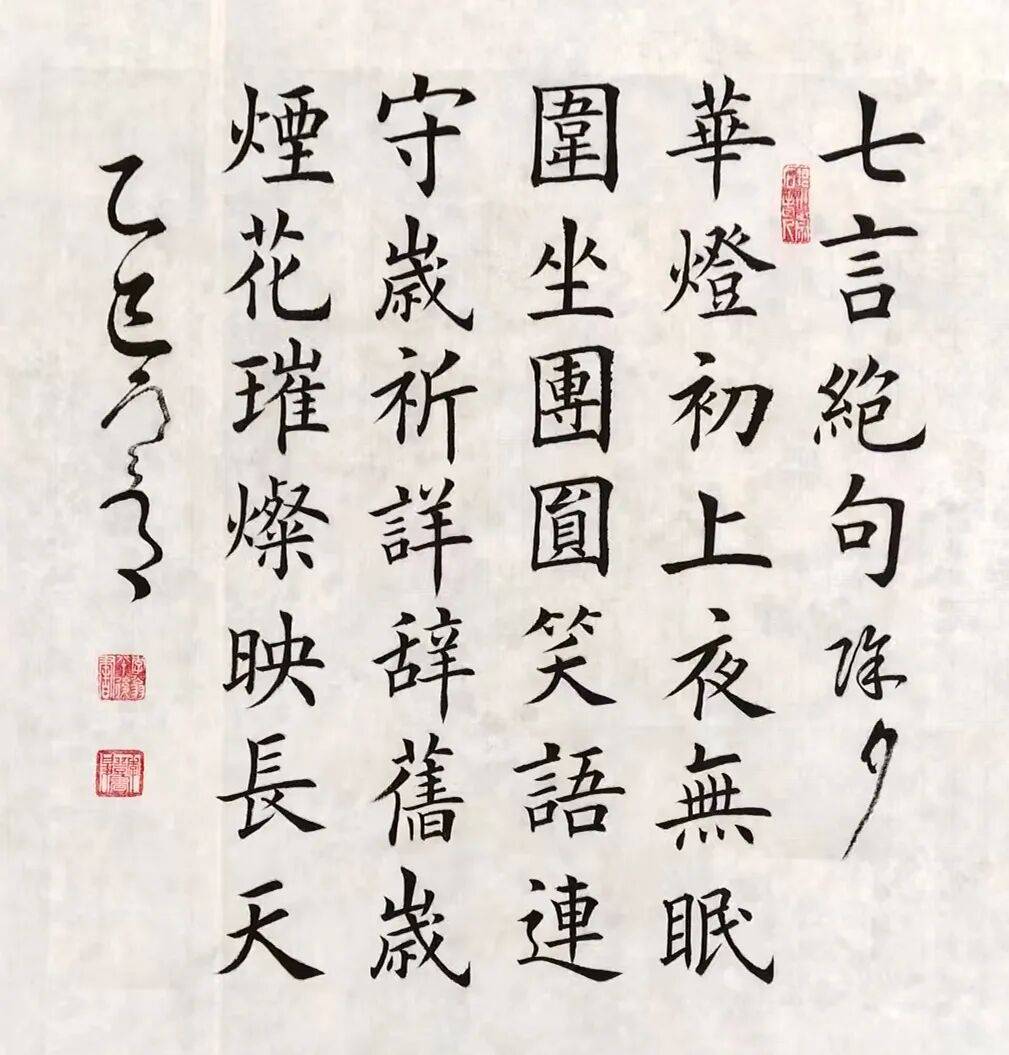 七言絕句除夕
華燈初上夜無眠
圍坐團圓笑語連
守歲祈詳辭舊歲
煙花璀燦映長天
乙巳